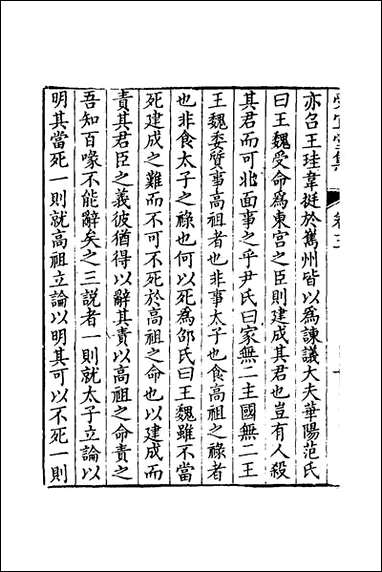 受宜堂集
卷三
亦召王珪韋挺於巂州皆以爲諫議大夫華陽范氏
曰王魏受命爲東宮之臣則建成其君也豈有人殺
其君而可北面事之乎尹氏曰家無二主國無二王
王魏委質事高祖者也非事太子也食高祖之祿者
也非食太子之祿也何以死爲邵氏曰王魏雖不當
死建成之難而不可不死於高祖之命也以建成而
責其君臣之義彼猶得以辭其責以高祖之命責之
吾知百喙不能辭矣之三説者一則就太子立論以
明其當死一則就高祖立論以明其可以不死一則